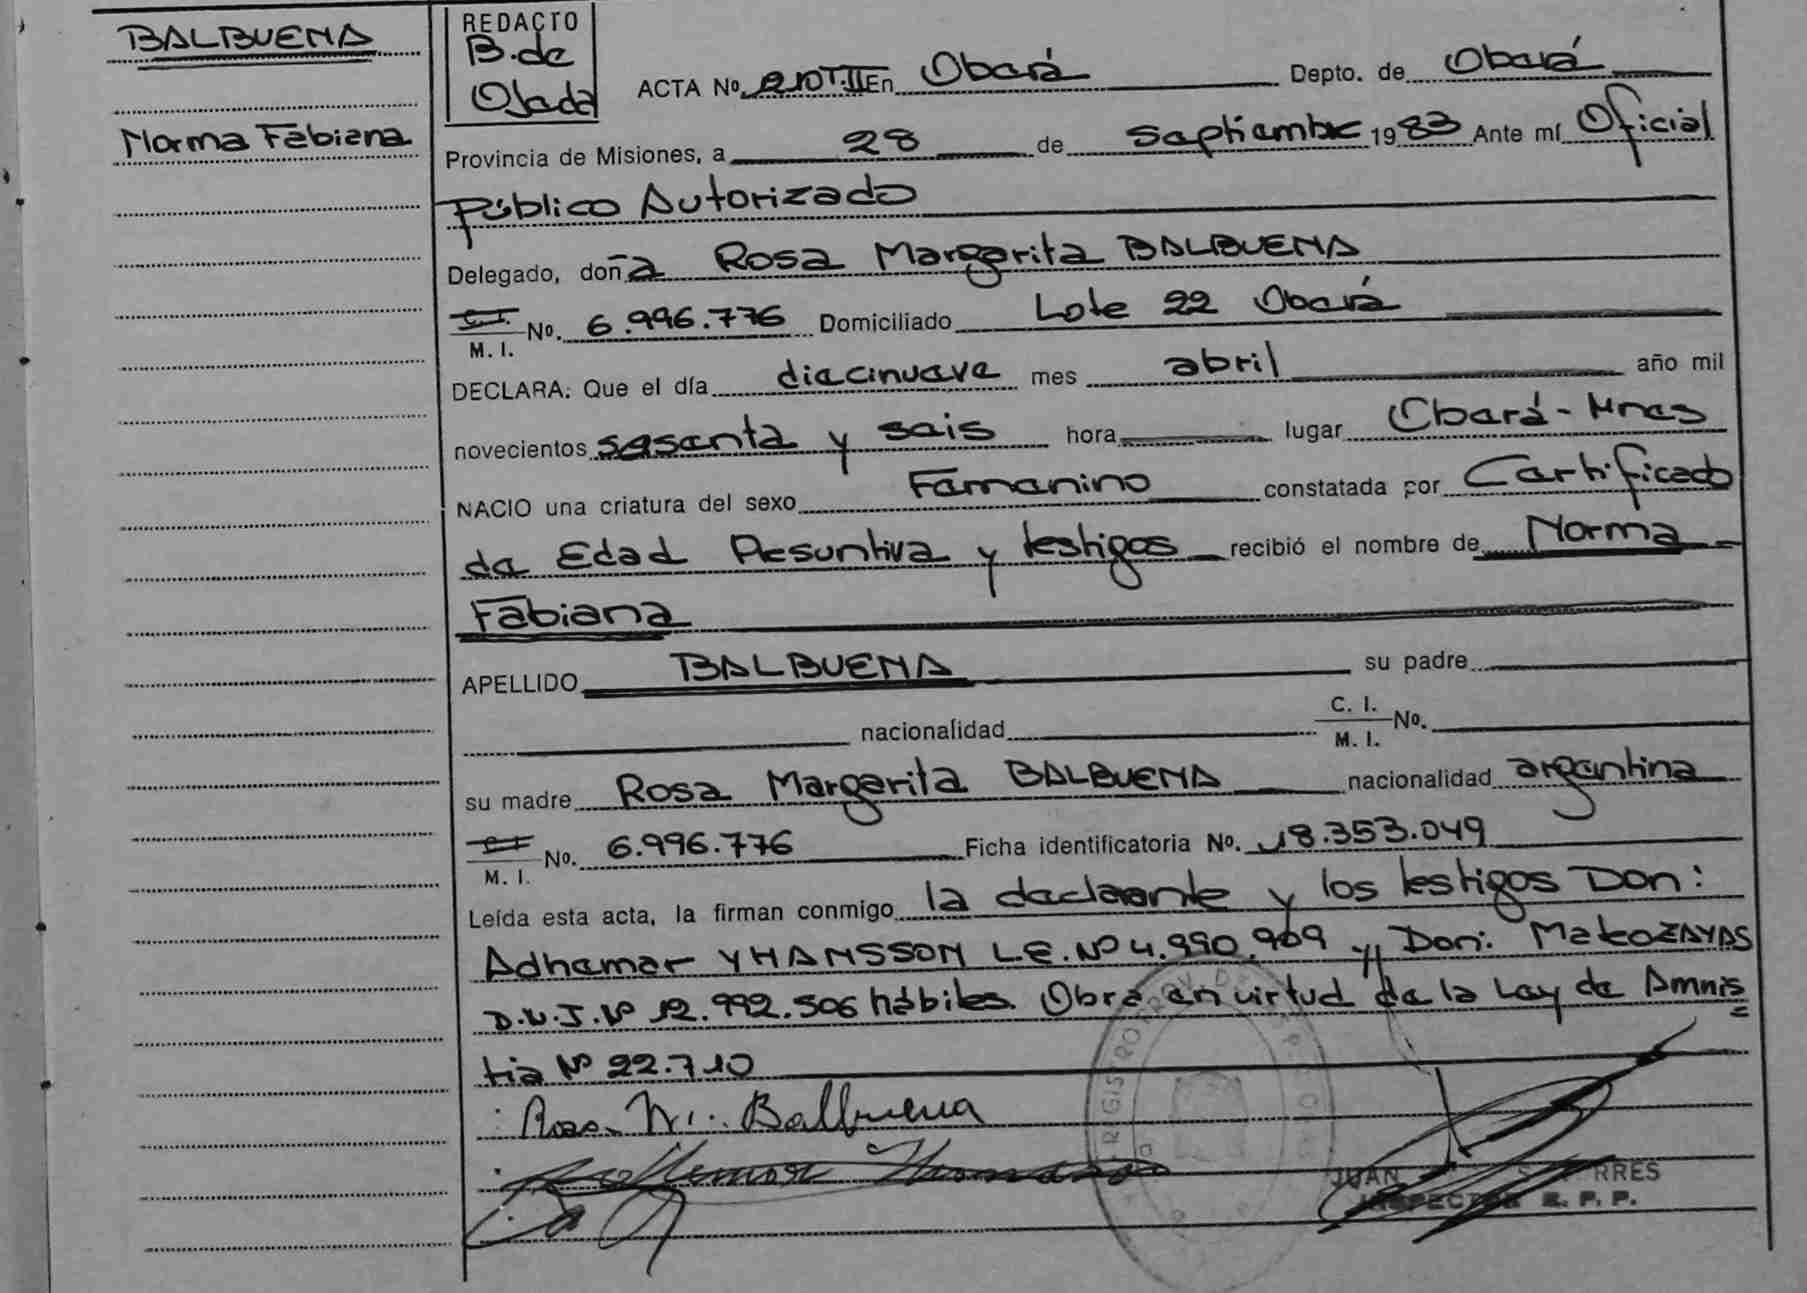 BALBUENA
Norma Fabiana
REDACTO
B. de
Ojeda
ACTA No. 210 T. II En Oberá Depto. de Oberá
Provincia de Misiones, a 28 de Septiembre 1983 Ante mí Oficial
Público Autorizado
Delegado, doña Rosa Margarita BALBUENA
C. I.
M. I. No. 6.996.776 Domiciliado Lote 22 Oberá
DECLARA: Que el día diecinueve mes abril año mil
novecientos sesenta y seis hora lugar Oberá - Mnes
NACIO una criatura del sexo Femenino constatada por Certificado
de Edad Presuntiva y testigos recibió el nombre de Norma
Fabiana
APELLIDO BALBUENA su padre
nacionalidad C. I. M. I. No.
su madre Rosa Margarita BALBUENA nacionalidad argentina
C. I.
M. I. No. 6.996.776 Ficha identificatoria No. 18.353.049
Leída esta acta, la firman conmigo la declarante y los testigos Don:
Adhemar YHANSSON L.E. Nº 4.990.909 y Don: Mateo ZAYAS
D.N.I. Nº 12.992.506 hábiles. Obra en virtud de la Ley de Amnis
tia Nº 22.710
Rosa M. Balbuena
JUAN
INSPECTOR R. P. P.
REGISTRO